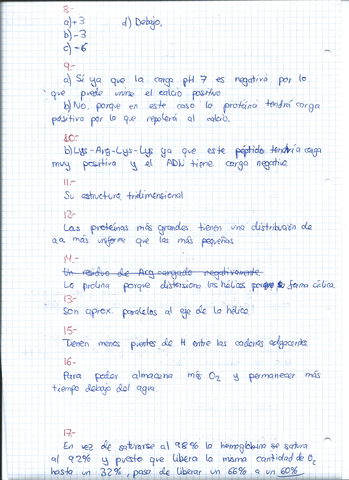 8.-
a) +3 d) Debajo.
b) -3
c) -6
9.-
a) Sí ya que la carga pH 7 es negativa por lo
que puede unirse el calcio positivo
b) No, porque en este caso la proteína tendrá carga
positiva por lo que repelerá al calcio.
10.-
b) Lys-Arg-Lys-Lys ya que este péptido tendría carga
muy positiva y el ADN tiene carga negativa
11.-
Su estructura tridimensional
12-
Las proteínas más grandes tienen una distribución de
aa más uniforme que las más pequeñas.
14.-
Un residuo de Arg cargado negativamente
La prolina porque distorsiona las hélices porque su forma cíclica.
13-
Son aprox. paralelos al eje de la hélice
15-
Tienen menos puentes de H entre las cadenas adyacentes
16-
Para poder almacena más O2 y permanecer más
tiempo debajo del agua.
17-
En vez de saturarse al 98% la hemoglobina se satura
al 92% y puesto que libera la misma cantidad de O2
hasta un 32%, pasa de liberar un 66% a un 60%